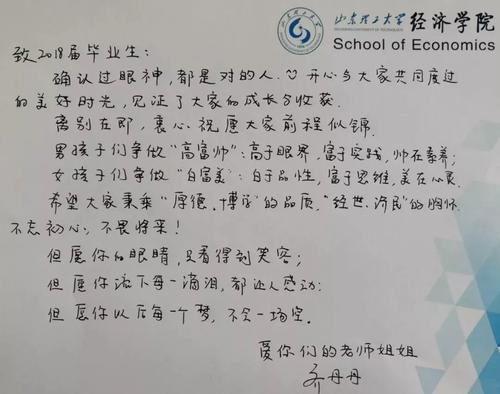 山东理工大学 经济学院
SHANDONG UNIVERSITY OF TECHNOLOGY
School of Economics
致2018届毕业生：
确认过眼神，都是对的人。开心与大家共同度过
的美好时光，见证了大家的成长与收获。
离别在即，衷心祝愿大家前程似锦。
男孩子们争做“高富帅”：高于眼界，富于实践，帅在素养；
女孩子们争做“白富美”：白于品性，富于思维，美在心灵。
希望大家秉乘“厚德、博学”的品质，“经世、济民”的胸怀
不忘初心，不畏将来！
但愿你的眼睛，只看得到笑容；
但愿你流下每一滴泪，都让人感动；
但愿你以后每一个梦，不会一场空。
爱你们的老师姐姐
乔丹丹